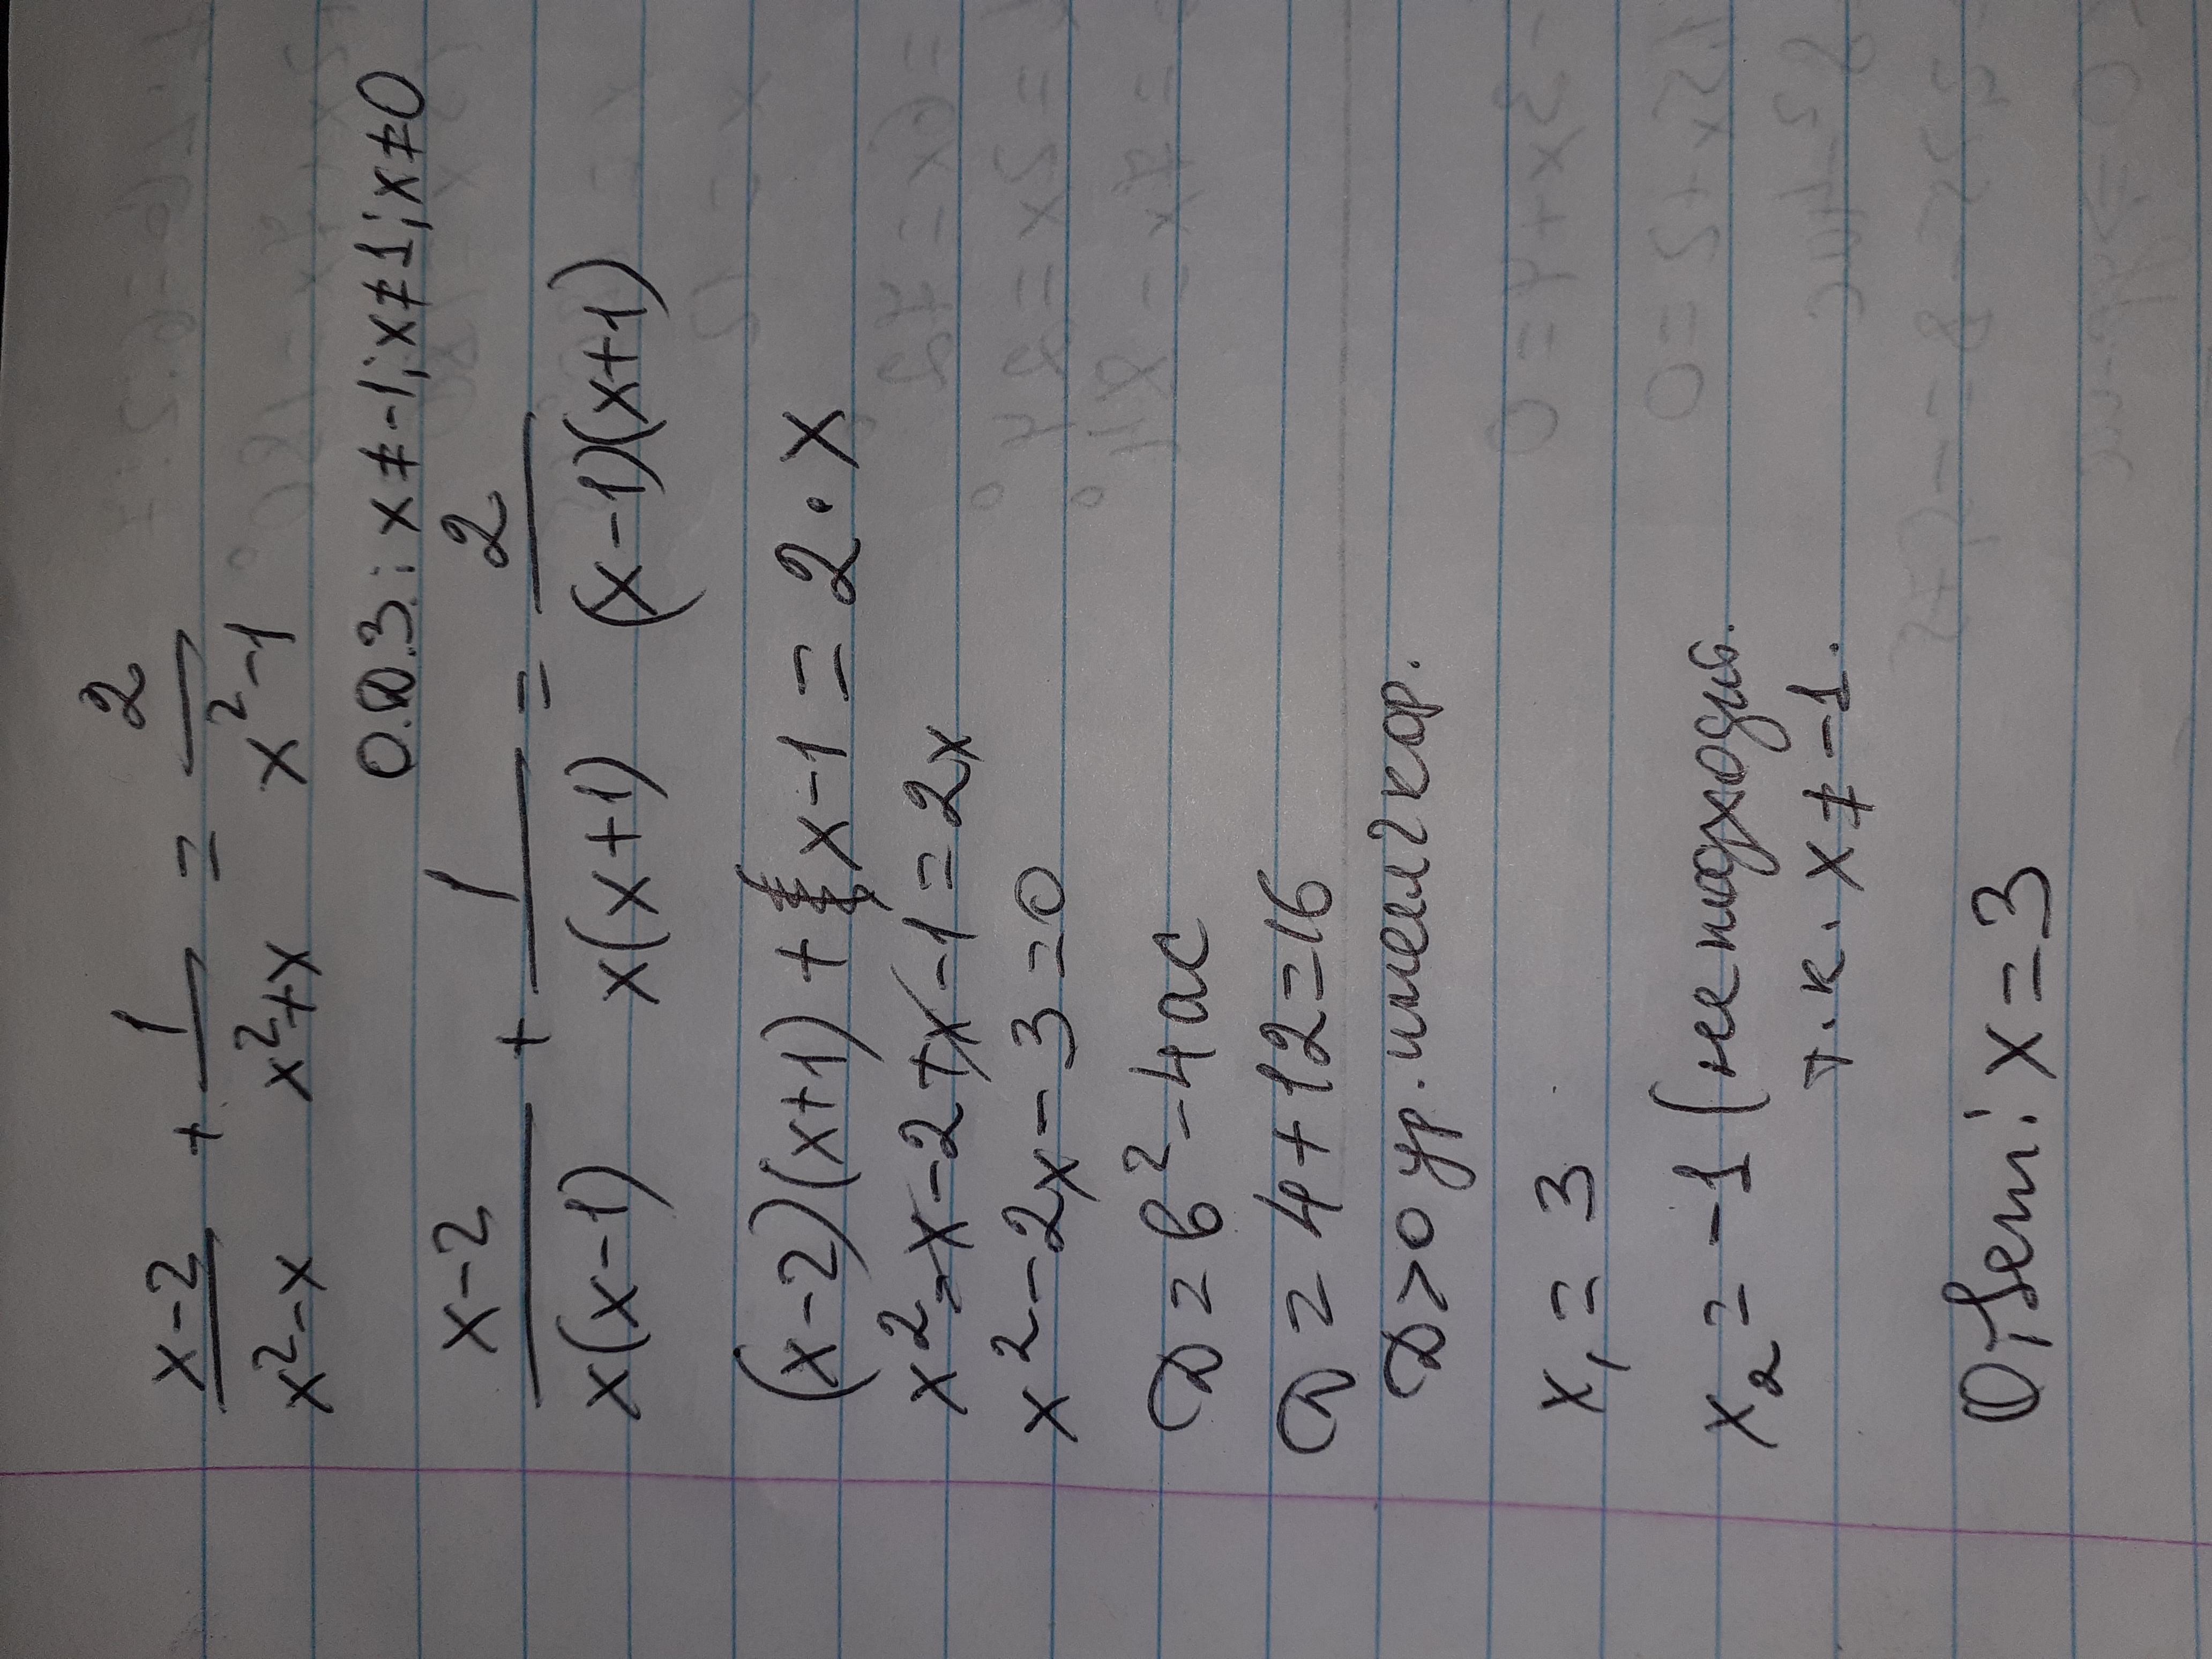 x-2/x²-x + 1/x²+x = 2/x²-1
О.Д.З.: x≠-1; x≠1; x≠0
x-2/x(x-1) + 1/x(x+1) = 2/(x-1)(x+1)
(x-2)(x+1) + x-1 = 2·x
x²-x-2+x-1=2x
x²-2x-3=0
D=b²-4ac
D=4+12=16
D>0 ур. имеет 2 кор.
x₁=3
x₂=-1 (не подходит.
т.к. x≠-1.
Ответ: x=3